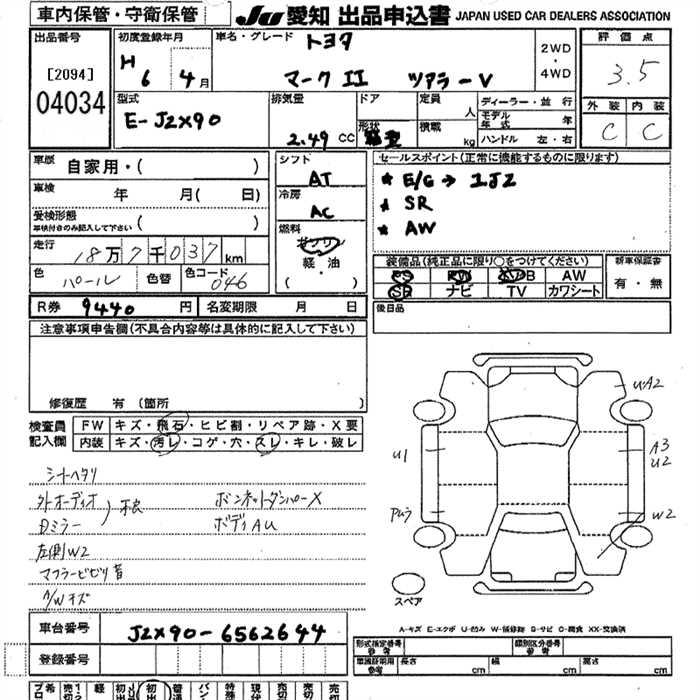 車内保管・守衛保管
JU 愛知 出品申込書 JAPAN USED CAR DEALERS ASSOCIATION
出品番号
[2094]
04034
初度登録年月
H 6 4月
車名・グレード トヨタ
マークII ツアラーV
2WD
・
4WD
評価点
3.5
外装 内装
C C
型式
E-JZX90
排気量
2.49 CC
ドア
形状
定員 人
積載 kg
ディーラー・並行
モデル年式 年
ハンドル 左・右
車歴 自家用・( )
車検 年 月( 日)
受検形態
車検付きのみ記入して下さい ( )
走行 18万7千037km
色 パール 色替 色コード 046
シフト
AT
冷房
AC
燃料
ガソリン
軽・油
( ・ )
セールスポイント(正常に機能するものに限ります)
★ E/G → 1JZ
★ SR
★ AW
装備品(純正品に限り○をつけてください)
PS PW AB AW
SR ナビ TV カワシート
新車保証書
有・無
後日品
R券 9440 円 名変期限 月 日
注意事項申告欄(不具合内容等は具体的に記入して下さい)
修復歴 有 (箇所 )
検査員記入欄
FW キズ・飛石・ヒビ割・リペア跡・X要
内装 キズ・汚レ・コゲ・穴・スレ・キレ・破レ
シートヘタリ
外オーディオ
Dミラー
不良
ボンネットダンパーX
ボディAU
左側W2
マフラービビリ音
A/Wキズ
UA2
U1
A3
U2
W2
スペア
A-キズ E-エクボ U-凹み W-補修跡 S-サビ C-腐食 XX-交換済
車台番号 JZX90-6562644
登録番号
形式指定番号 類別区分番号
車両証明用参考 長さ cm 幅 cm 高さ cm